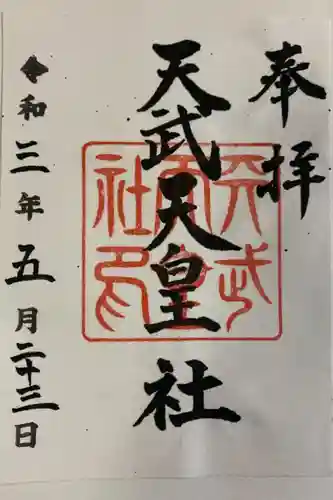 奉拝
天武天皇社
天武天皇社印
令和三年五月二十三日